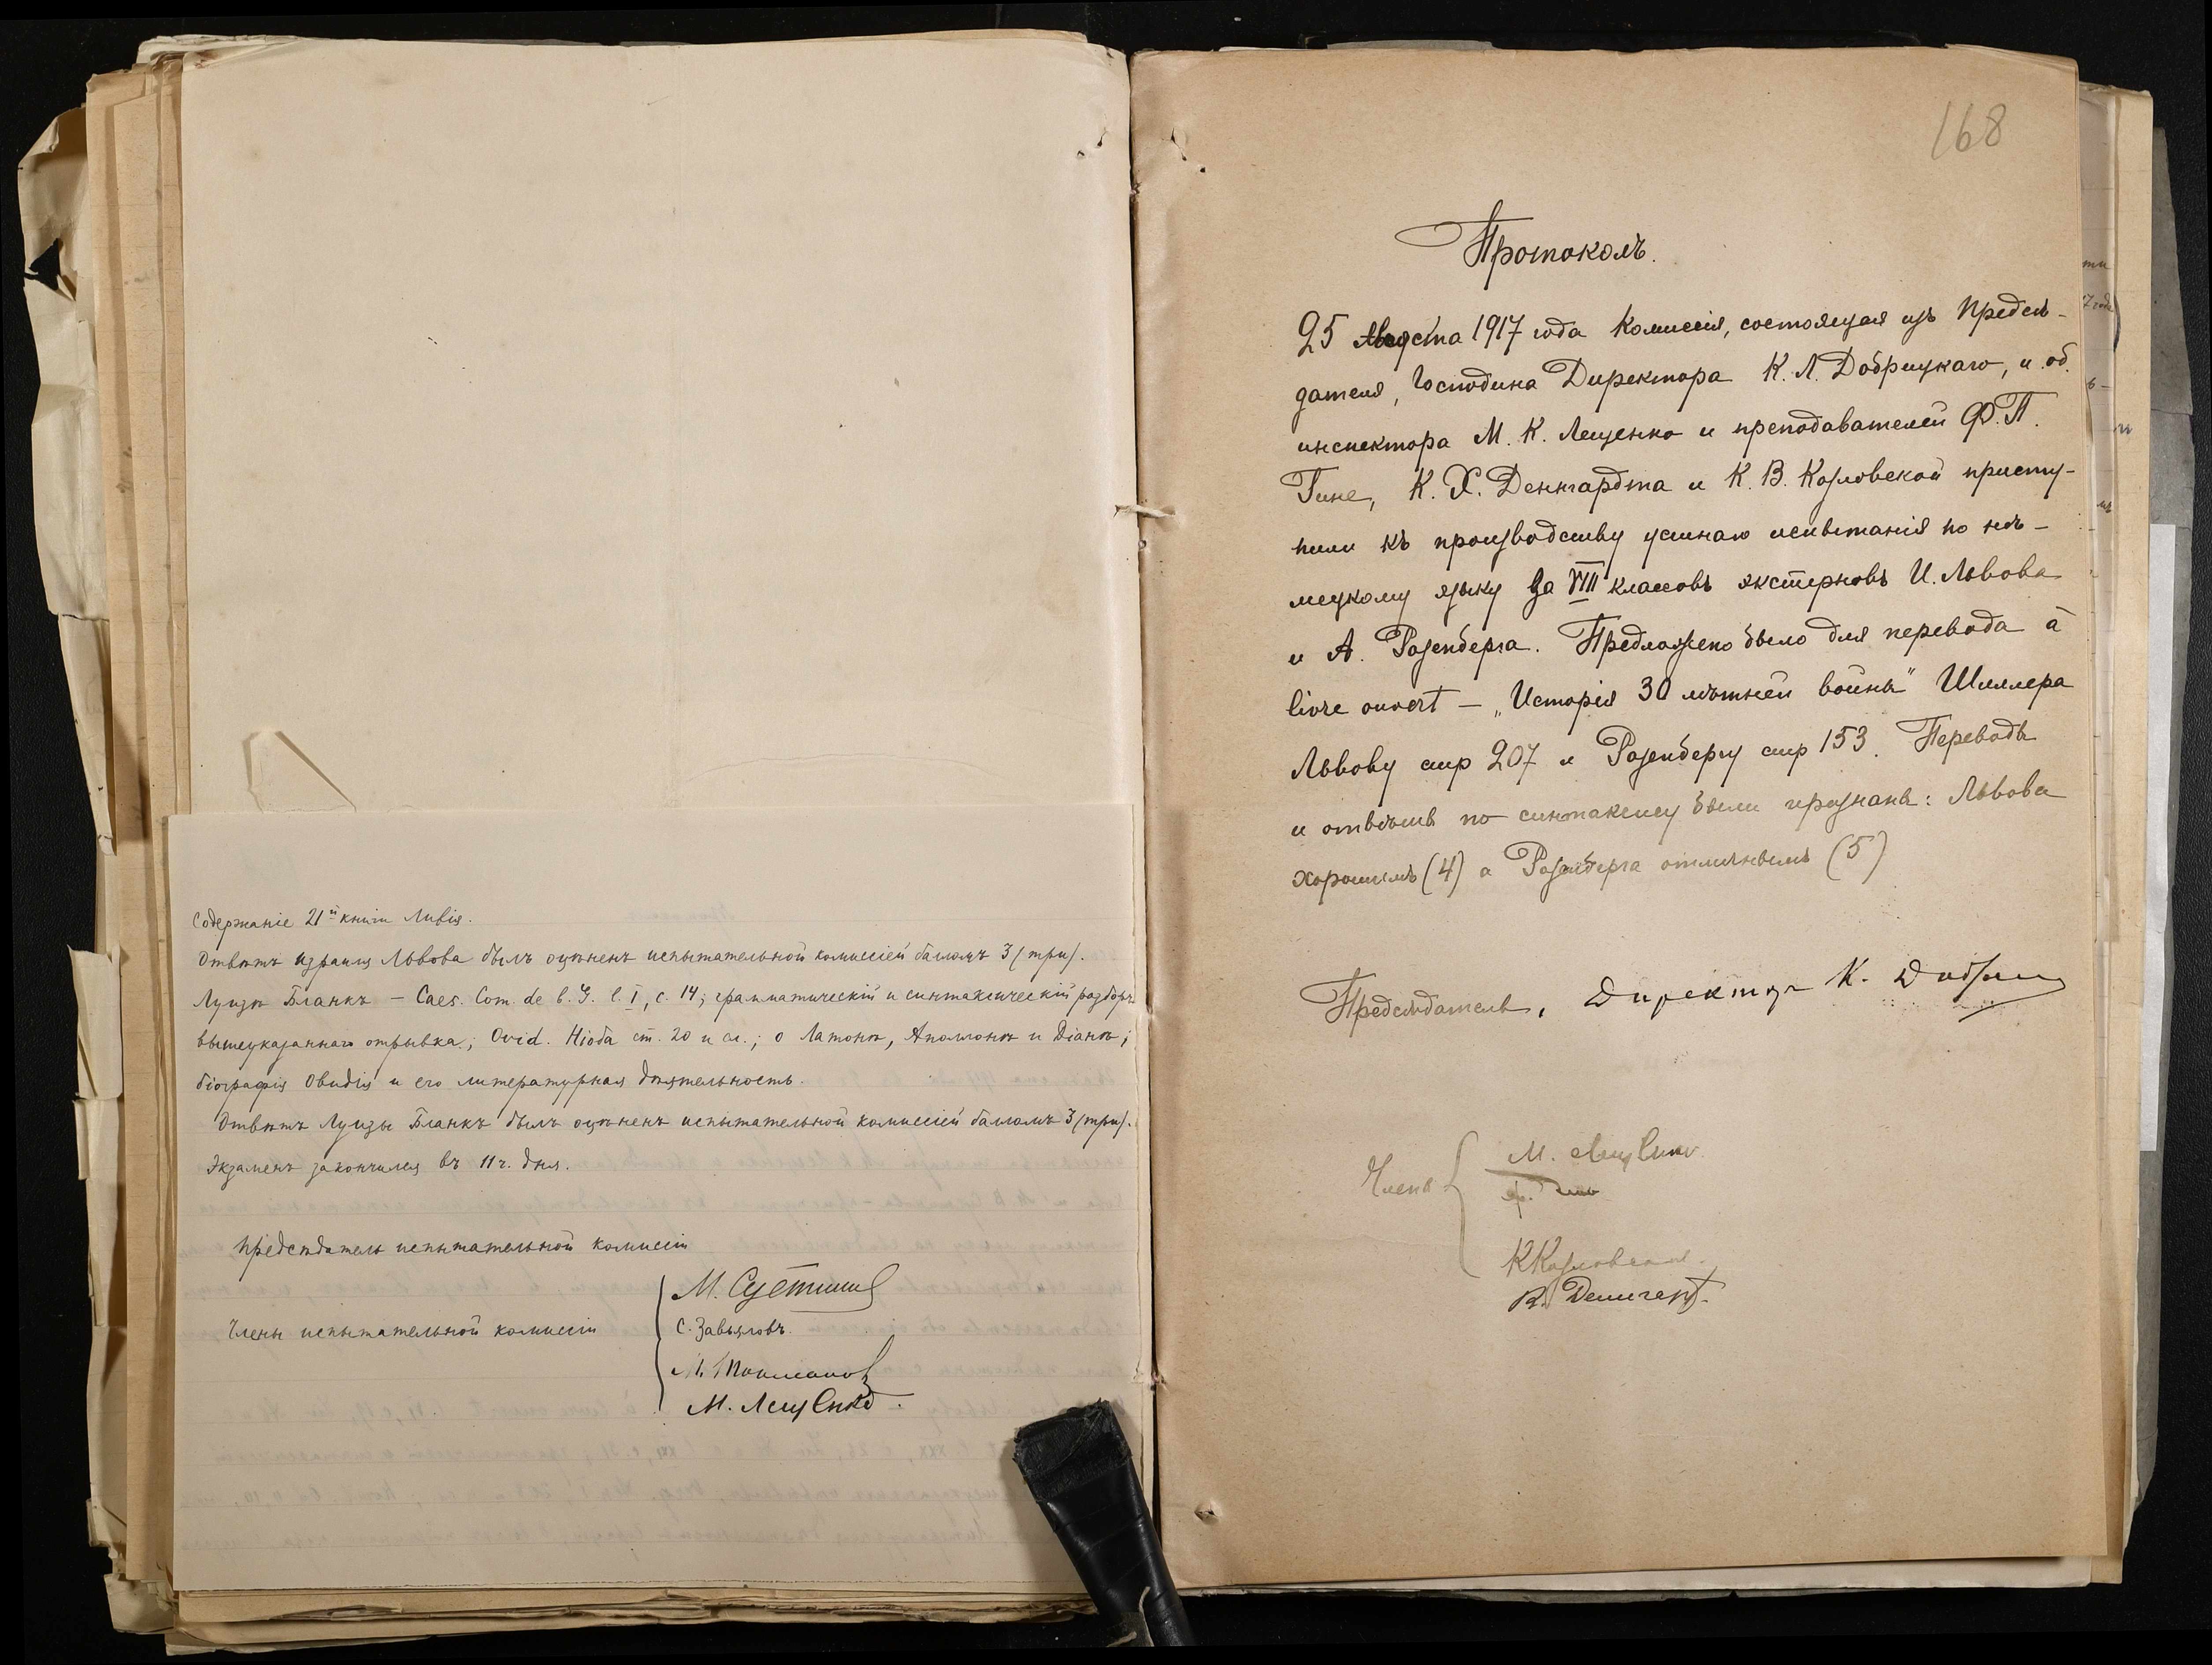 Содержаніе 21й книги Ливія.
Отвѣтъ Израиля Львова былъ оцѣненъ испытательной комиссіей балломъ 3 (три).
Луизѣ Бланкъ – Caes. Com. de b. G. l. I, c. 14; грамматическій и синтаксическій разборъ
вышеуказаннаго отрывка; Ovid. Ніоба ст. 20 и сл.; о Латонѣ, Аполлонѣ и Діанѣ;
біографія Овидія и его литературная дѣятельность.
Отвѣтъ Луизы Бланкъ былъ оцѣненъ испытательной комиссіей балломъ 3 (три).
Экзаменъ закончился въ 11 ч. дня.
Предсѣдатель испытательной комиссіи
Члены испытательной комиссіи
М.
С. Завьяловъ.
М.
М. Лещенко.
168
Протоколъ.
25 Августа 1917 года Комиссія, состоящая изъ Предсѣ-
дателя, Господина Директора К. Л. Добрицкаго, и. об.
инспектора М. К. Лещенко и преподавателей Ф. П.
Гине, К. Х. Денгардта и К. В. Козловской присту-
пили къ производству устнаго испытанія по нѣ-
мецкому языку за VIII классовъ экстерновъ И. Львова
и А. Розенберга. Предложено было для перевода à
livre ouvert – „Исторія 30 лѣтней войны" Шиллера
Львову стр 207 и Розенбергу стр 153. Переводъ
и отвѣты по синтаксису были признаны: Львова
хорошимъ (4) а Розенберга отличнымъ (5)
Предсѣдатель, Директоръ К.
Члены
М. Лещенко
К Козловская.
К. Денгардт.